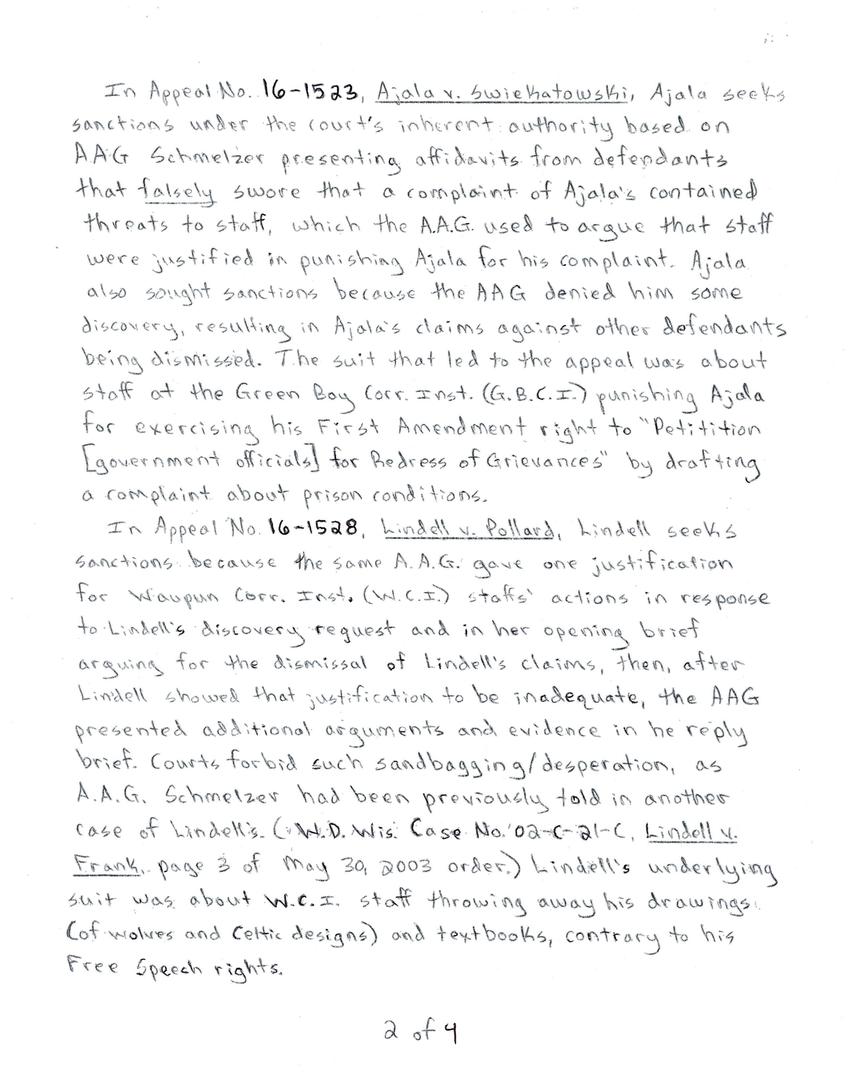 In Appeal No. 16-1523, Ajala v. Swiekatowski, Ajala seeks
sanctions under the court's inherent authority based on
AAG Schmelzer presenting affidavits from defendants
that falsely swore that a complaint of Ajala's contained
threats to staff, which the A.A.G. used to argue that staff
were justified in punishing Ajala for his complaint. Ajala
also sought sanctions because the AAG denied him some
discovery, resulting in Ajala's claims against other defendants
being dismissed. The suit that led to the appeal was about
staff at the Green Bay Corr. Inst. (G.B.C.I.) punishing Ajala
for exercising his First Amendment right to "Petitition
[government officials] for Redress of Grievances" by drafting
a complaint about prison conditions.
In Appeal No. 16-1528, Lindell v. Pollard, Lindell seeks
sanctions because the same A.A.G. gave one justification
for Waupun Corr. Inst. (W.C.I.) staffs' actions in response
to Lindell's discovery request and in her opening brief
arguing for the dismissal of Lindell's claims, then, after
Lindell showed that justification to be inadequate, the AAG
presented additional arguments and evidence in he reply
brief. Courts forbid such sandbagging/desperation, as
A.A.G. Schmelzer had been previously told in another
case of Lindell's. (W.D. Wis. Case No. 02-C-21-C, Lindell v.
Frank, page 3 of May 30, 2003 order.) Lindell's underlying
suit was about W.C.I. staff throwing away his drawings
(of wolves and Celtic designs) and textbooks, contrary to his
Free Speech rights.
2 of 4